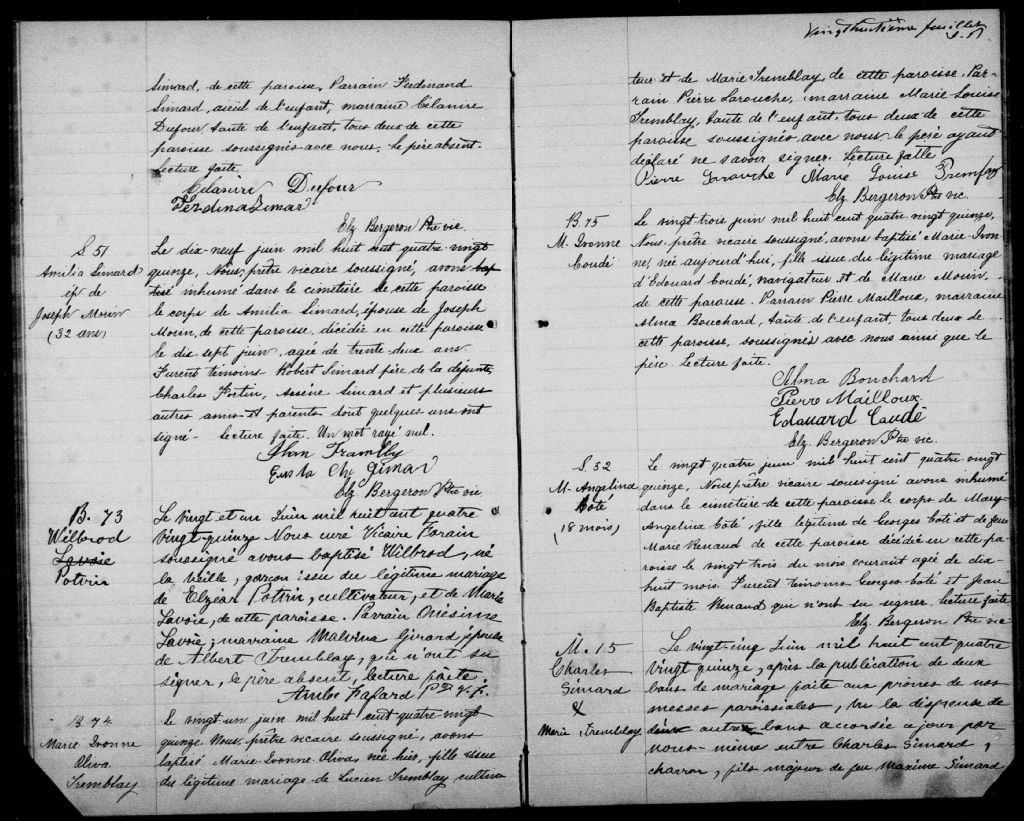 Simard, de cette paroisse. Parrain Ferdinand
Simard, aïeul de l'enfant, marraine Célanire
Dufour tante de l'enfant, tous deux de cette
paroisse soussignés avec nous. Le père absent.
Lecture faite.
Célanire Dufour
Ferdina Simar
Elz Bergeron Ptre vic.
S. 51
Amilia Simard
ép de
Joseph Morin
(32 ans)
Le dix-neuf juin mil huit cent quatre-vingt
quinze, Nous, prêtre vicaire soussigné, avons bap
tisé inhumé dans le cimetière de cette paroisse
le corps de Amilia Simard, épouse de Joseph
Morin, de cette paroisse, décédée en cette paroisse
le dix sept juin, agée de trente-deux ans.
Furent témoins Robert Simard père de la défunte,
Charles Fortin, Arsène Simard et plusieurs
autres amis et parents dont quelques uns ont
signé. Lecture faite. Un mot rayé nul.
Elz Bergeron Ptre vic
B. 73
Wilbrod
Lavoie
Potvin
Le vingt et un Juin mil huit cent quatre
vingt-quinze Nous curé Vicaire Forain
soussigné avons baptisé Wilbrod, né
la veille, garçon issu du légitime mariage
de Elzéar Potvin, cultivateur, et de Marie
Lavoie, de cette paroisse. Parrain Onésime
Lavoie; marraine Malvina Girard, épouse
de Albert Tremblay, qui n'ont su
signer, le père absent, lecture faite.
Ambr Fafard Ptre V. F.
B. 74
Marie Ivonne
Oliva
Tremblay
Le vingt-un juin mil huit cent quatre-vingt
quinze. Nous, prêtre vicaire soussigné, avons
baptisé Marie-Ivonne-Oliva, née hier, fille issue
du légitime mariage de Lucien Tremblay, cultiva
Vingthuitième feuillet
teur et de Marie Tremblay, de cette paroisse. Par-
rain Pierre Larouche, marraine Marie Louise
Tremblay, tante de l'enfant, tous deux de cette
paroisse soussignés avec nous le père ayant
déclaré ne savoir signer. Lecture faite
Pierre Larouche Marie Louise Tremblay
Elz Bergeron Ptre vic.
B. 75
M. Ivonne
Coudé
Le vingt-trois juin mil huit cent quatre-vingt quinze,
Nous prêtre vicaire soussigné, avons baptisé Marie-Ivon-
ne, née aujourd'hui, fille issue du légitime mariage
d'Edouard Coudé, navigateur et de Marie Morin,
de cette paroisse. Parrain Pierre Mailloux, marraine
Alma Bouchard, tante de l'enfant, tous deux de
cette paroisse, soussignés avec nous ainsi que le
père. Lecture faite.
Alma Bouchard
Pierre Mailloux
Edouard Caudé
Elz. Bergeron Ptre vic.
S. 52
M. Angelina
Coté
(18 mois)
Le vingt quatre juin mil huit cent quatre vingt
quinze, Nous, prêtre vicaire soussigné avons inhumé
dans le cimetière de cette paroisse le corps de Mary
Angelina Coté, fille légitime de Georges Coté et de feue
Marie Renaud de cette paroisse décédée en cette pa-
roisse le vingt trois du mois courant agée de dix-
huit mois. Furent témoins Georges Coté et Jean
Baptiste Renaud qui n'ont su signer. Lecture faite
Elz. Bergeron Ptre vic
M. 15
Charles
Simard
&
Marie Tremblay
Le vingt-cinq Juin mil huit cent quatre
vingt quinze, après la publication de deux
bans de mariage faite aux prônes de nos
messes paroissiales, vu la dispense de
deux autres bans accordée à jour par
nous-même entre Charles Simard,
charron, fils majeur de feu Maxime Simard